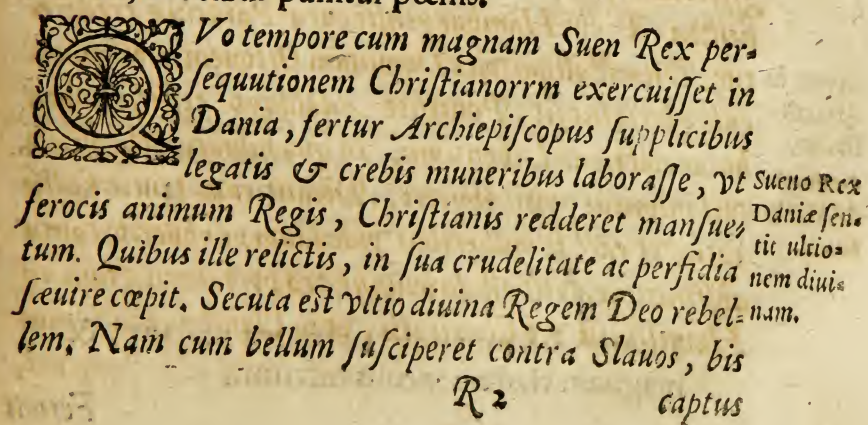 QVo tempore cum magnam Suen Rex per=
ſequutionem Chriſtianorrm exercuiſſet in
Dania, fertur Archiepiſcopus ſupplicibus
legatis & crebis muneribus laboraſſe, vt
ferocis animum Regis, Chriſtianis redderet manſue=
tum. Quibus ille relictis, in ſua crudelitate ac perfidia
ſæuire cœpit. Secuta eſt vltio diuina Regem Deo rebel=
lem. Nam cum bellum ſuſciperet contra Slauos, bis
R 2 captus
Sueno Rex
Daniæ ſen=
tit ultio=
nem diui=
nam.